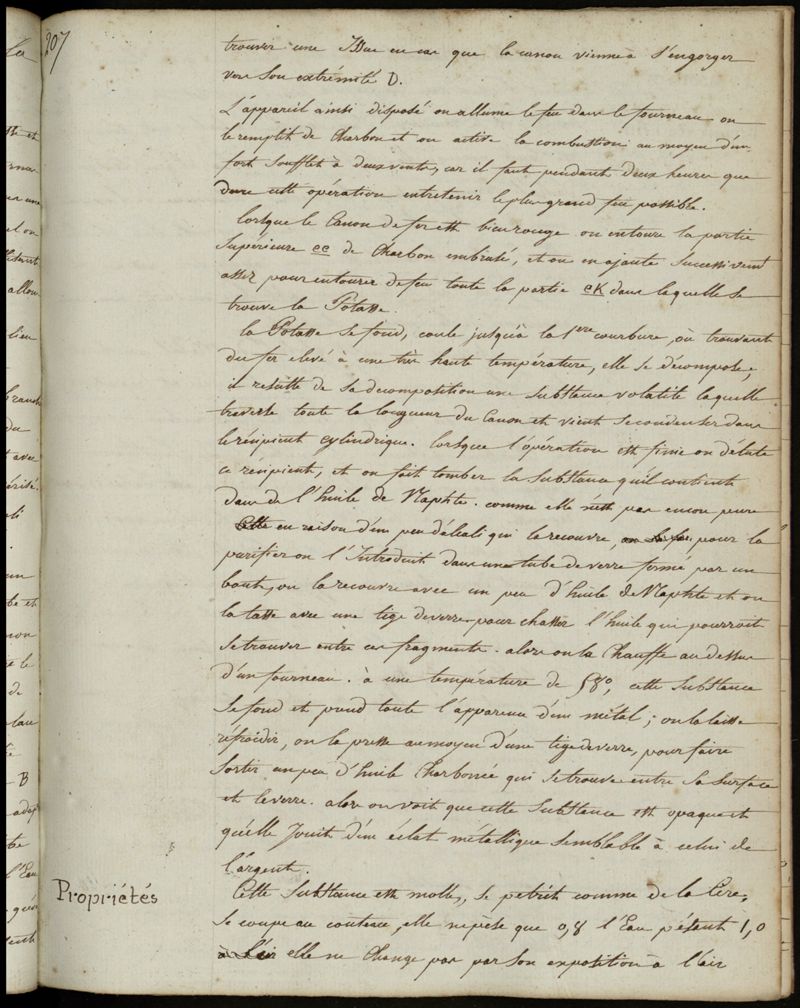 207
trouver une Issue en cas que le canon vienne à s'engorger
vers son extrémité D.
L'appareil ainsi disposé on allume le feu dans le fourneau on
le remplit de Charbon et on active la combustion au moyen d'un
fort Soufflet à deux vents, car il faut pendant deux heures que
dure cette opération entretenir le plus grand feu possible.
lorsque le Canon de fer est bien rouge on entoure la partie
Supérieure ee de Charbon embrasé, et on en ajoute Successivemt
assez pour entourer de feu toute la partie eK dans laquelle se
trouve la Potasse.
la Potasse se fond, coule jusqu'à la 1ere courbure, où trouvant
du fer elevé à une très haute température, elle se décompose,
il résulte de sa decomposition une substance volatile laquelle
traverse toute la longueur du Canon et vient se condenser dans
le récipient cylindrique. lorsque l'opération est finie on délute
ce récipient, et on fait tomber la substance qu'il contient
dans de l'huile de Naphte. comme elle n'est pas encore pure
en raison d'un peu d'alcali qui la recouvre, pour la
purifier on l'Introduit dans une tube de verre fermé par un
bout, on la recouvre avec un peu d'huile de Naphte et on
la tasse avec une tige de verre pour chasser l'huile qui pourroit
se trouver entre ces fragments. alors on la Chauffe au dessus
d'un fourneau. à une température de 58°, cette Substance
se fond et prend toute l'apparence d'un métal; on la laisse
refroidir, on la presse au moyen d'une tige de verre, pour faire
sortir un peu d'huile Charbonnée qui se trouve entre sa surface
et le verre. alors on voit que cette Substance est opaque et
qu'elle Jouit d'un éclat métallique semblable à celui de
l'argent.
Propriétés
Cette Substance est molle, se petrit comme de la Cire,
se coupe au couteau, elle ne pèse que 0,8 l'Eau pésant 1,0
elle ne Change pas par son exposition à l'air